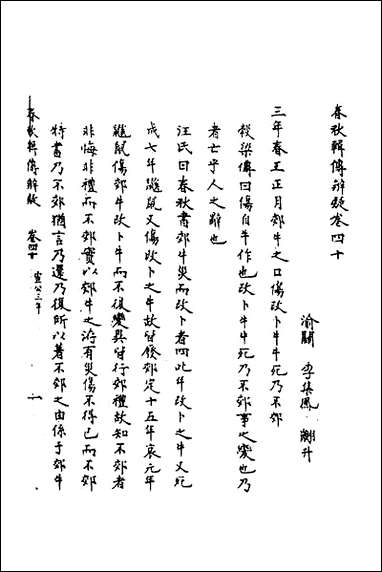 春秋輯傳辨疑卷四十
渝關　李集鳳　翽升
三年春王正月郊牛之口傷改卜牛牛死乃不郊
穀梁傳曰傷自牛作也改卜牛牛死乃不郊事之變也乃
者亡乎人之辭也
汪氏曰春秋書郊牛災而改卜者四此年改卜之牛又死
成七年鼷鼠又傷改卜之牛故皆廢郊定十五年哀元年
鼷鼠傷郊牛改卜牛而不復變異皆行郊禮故知不郊者
非悔非禮而不郊實以郊牛之洊有災傷不得已而不郊
特書乃不郊猶言乃還乃復所以著不郊之由係于郊牛
春秋輯傳辨疑　卷四十　宣公三年　一